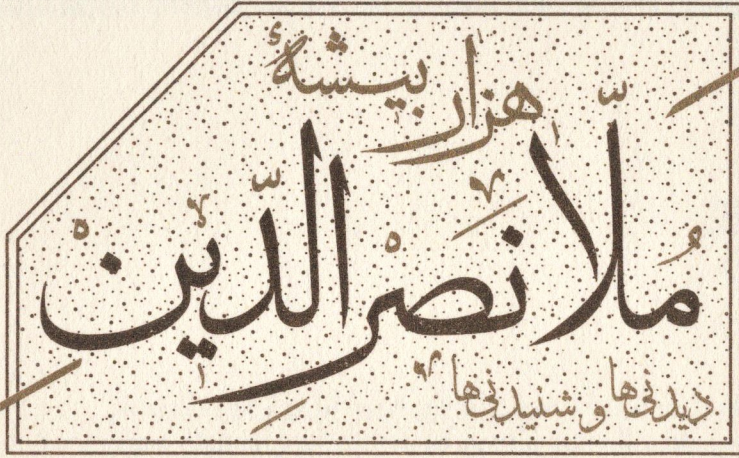 هزار بیشهٔ
مُلّا نصرالدّین
دیدنی‌ها و شنیدنی‌ها